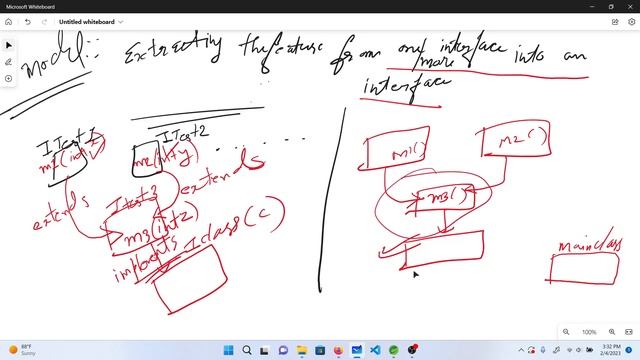 Microsoft Whiteboard
Untitled whiteboard
model::
Extracting the feature from one interface into an
more
interface
ITest1
ITest2
m1(int x)
m2(int y)
extends
extends
ITest3
m3(int z)
implements
Iclass(C)
m1()
m2()
m3()
mainclass
100%
88°F
Sunny
Search
3:32 PM
2/4/2023